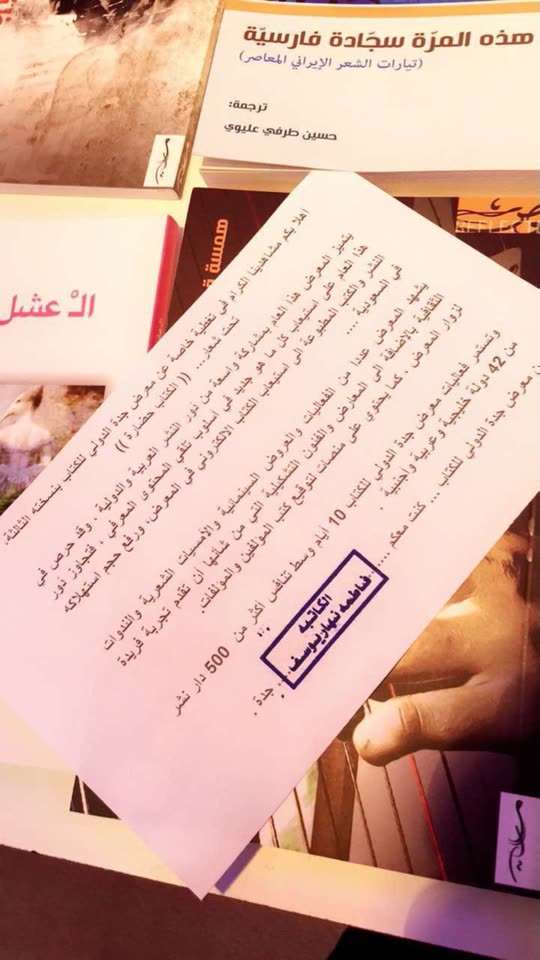 هذه المرّة سجّادة فارسيّة
(تيارات الشعر الإيراني المعاصر)
ترجمة:
حسين طرفي عليوي
همسة
الْـ عشل
اهلا بكم مشاهدينا الكرام في تغطية خاصة عن معرض جدة الدولي للكتاب بنسخته الثالثة،
تحت شعار... (( الكتاب حضارة ))
يتميز المعرض هذا العام بمشاركة واسعة من دور النشر العربية والدولية ، وقد حرص في
هذا العام على استيعاب كل ما هو جديد في اسلوب تلقي المحتوى المعرفي ، فتجاوز دور
النشر والكتب المطبوعة الى استيعاب الكتاب الالكتروني في المعرض، ورفع حجم استهلاكه
في السعودية ...
يشهد المعرض عددا من الفعاليات والعروض السينمائية والأمسيات الشعرية والندوات
الثقافية بالاضافة الى المعارض والفنون التشكيلية التي من شانها أن تقدم تجربة فريدة
لزوار المعرض ، كما يحتوي على منصات لتوقيع كتب المؤلفين والمؤلفات
وتستمر فعاليات معرض جدة الدولي للكتاب 10 أيام وسط تنافس أكثر من 500 دار نشر
من 42 دولة خليجية وعربية واجنبية .
معرض جدة الدولي للكتاب ... كنت معكم ... جدة .
الكاتبه
فاطمه نهار يوسف